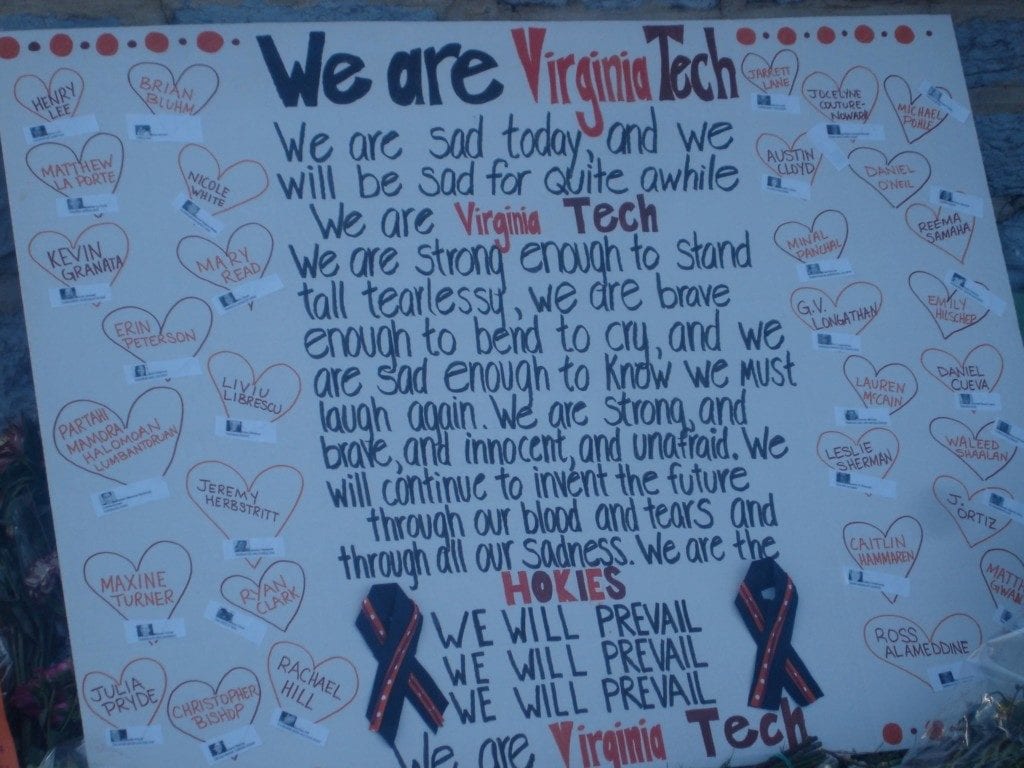 We are Virginia Tech
We are sad today, and we
will be sad for quite awhile
We are Virginia Tech
We are strong enough to stand
tall tearlessy, we are brave
enough to bend to cry, and we
are sad enough to know we must
laugh again. We are strong, and
brave, and innocent, and unafraid. We
will continue to invent the future
through our blood and tears and
through all our sadness. We are the
HOKIES
WE WILL PREVAIL
WE WILL PREVAIL
WE WILL PREVAIL
We are Virginia Tech
HENRY
LEE
BRIAN
BLUHM
MATTHEW
LA PORTE
NICOLE
WHITE
KEVIN
GRANATA
MARY
READ
ERIN
PETERSON
LIVIU
LIBRESCU
PARTAHI
MAMORA
HALOMOAN
LUMBANTORUAN
JEREMY
HERBSTRITT
MAXINE
TURNER
RYAN
CLARK
JULIA
PRYDE
CHRISTOPHER
BISHOP
RACHAEL
HILL
JARRETT
LANE
JOCELYNE
COUTURE-
NOWAK
MICHAEL
POHLE
AUSTIN
CLOYD
DANIEL
O'NEIL
REEMA
SAMAHA
MINAL
PANCHAL
G.V.
LONGATHAN
EMILY
HILSCHER
LAUREN
McCAIN
DANIEL
CUEVA
LESLIE
SHERMAN
WALEED
SHAALAN
J.
ORTIZ
CAITLIN
HAMMAREN
ROSS
ALAMEDDINE